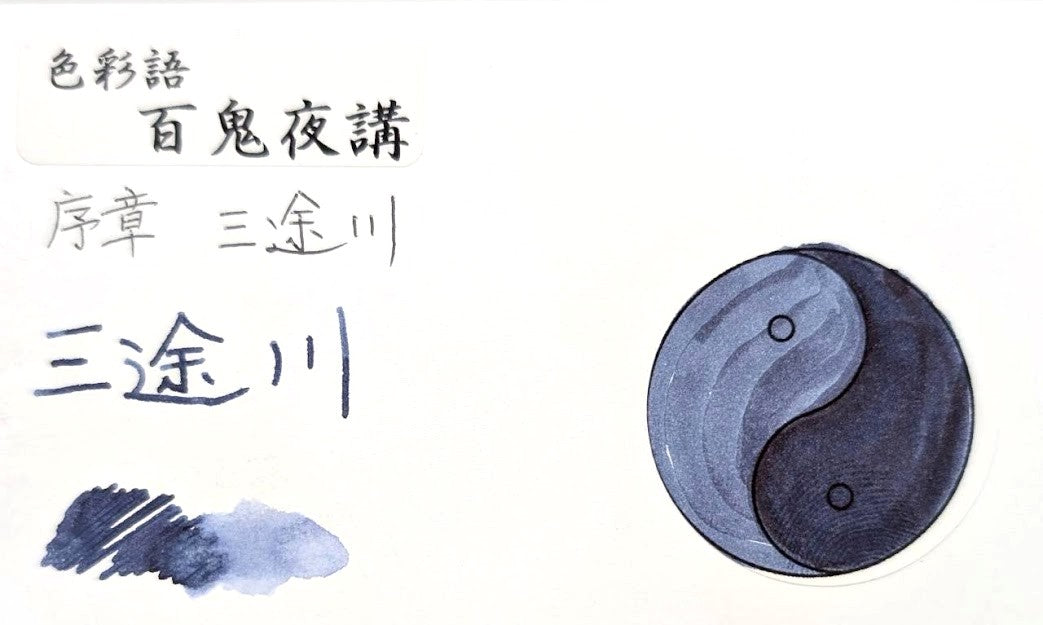 色彩語
百鬼夜講
序章 三途川
三途川